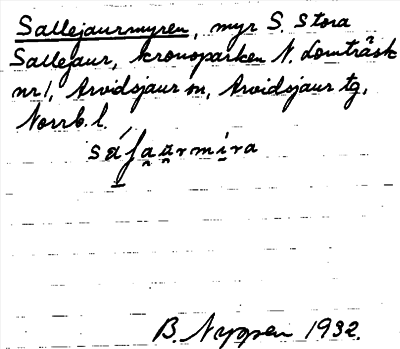 Sallejaurmyren, myr S. Stora
Sallejaur, kronoparken N. Lomträsk
nr 1, Arvidsjaur sn, Arvidsjaur tg,
Norrb. l.
B. Nygren 1932.